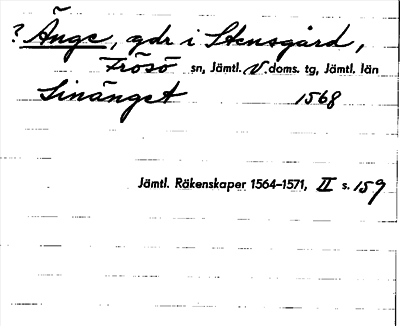 ? Änge, gdr i Stensgård,
Frösö sn, Jämtl. V. doms. tg, Jämtl. län
Linänget 1568
Jämtl. Räkenskaper 1564-1571, II s. 159